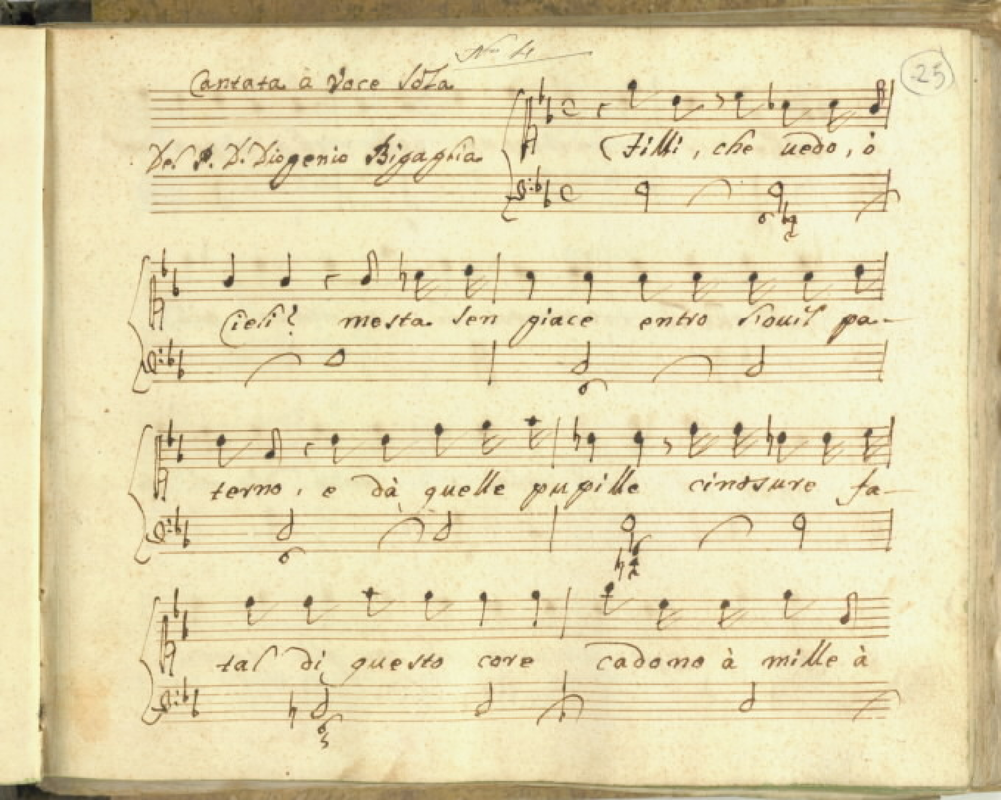 No 4
25
Cantata à Voce Sola
Del P. D. Diogenio Bigaglia
Filli, che uedo, ò
Cieli? mesta sen giace entro pa-
terno, e dà quelle pupille cinosure fa-
tal di questo core cadono à mille à